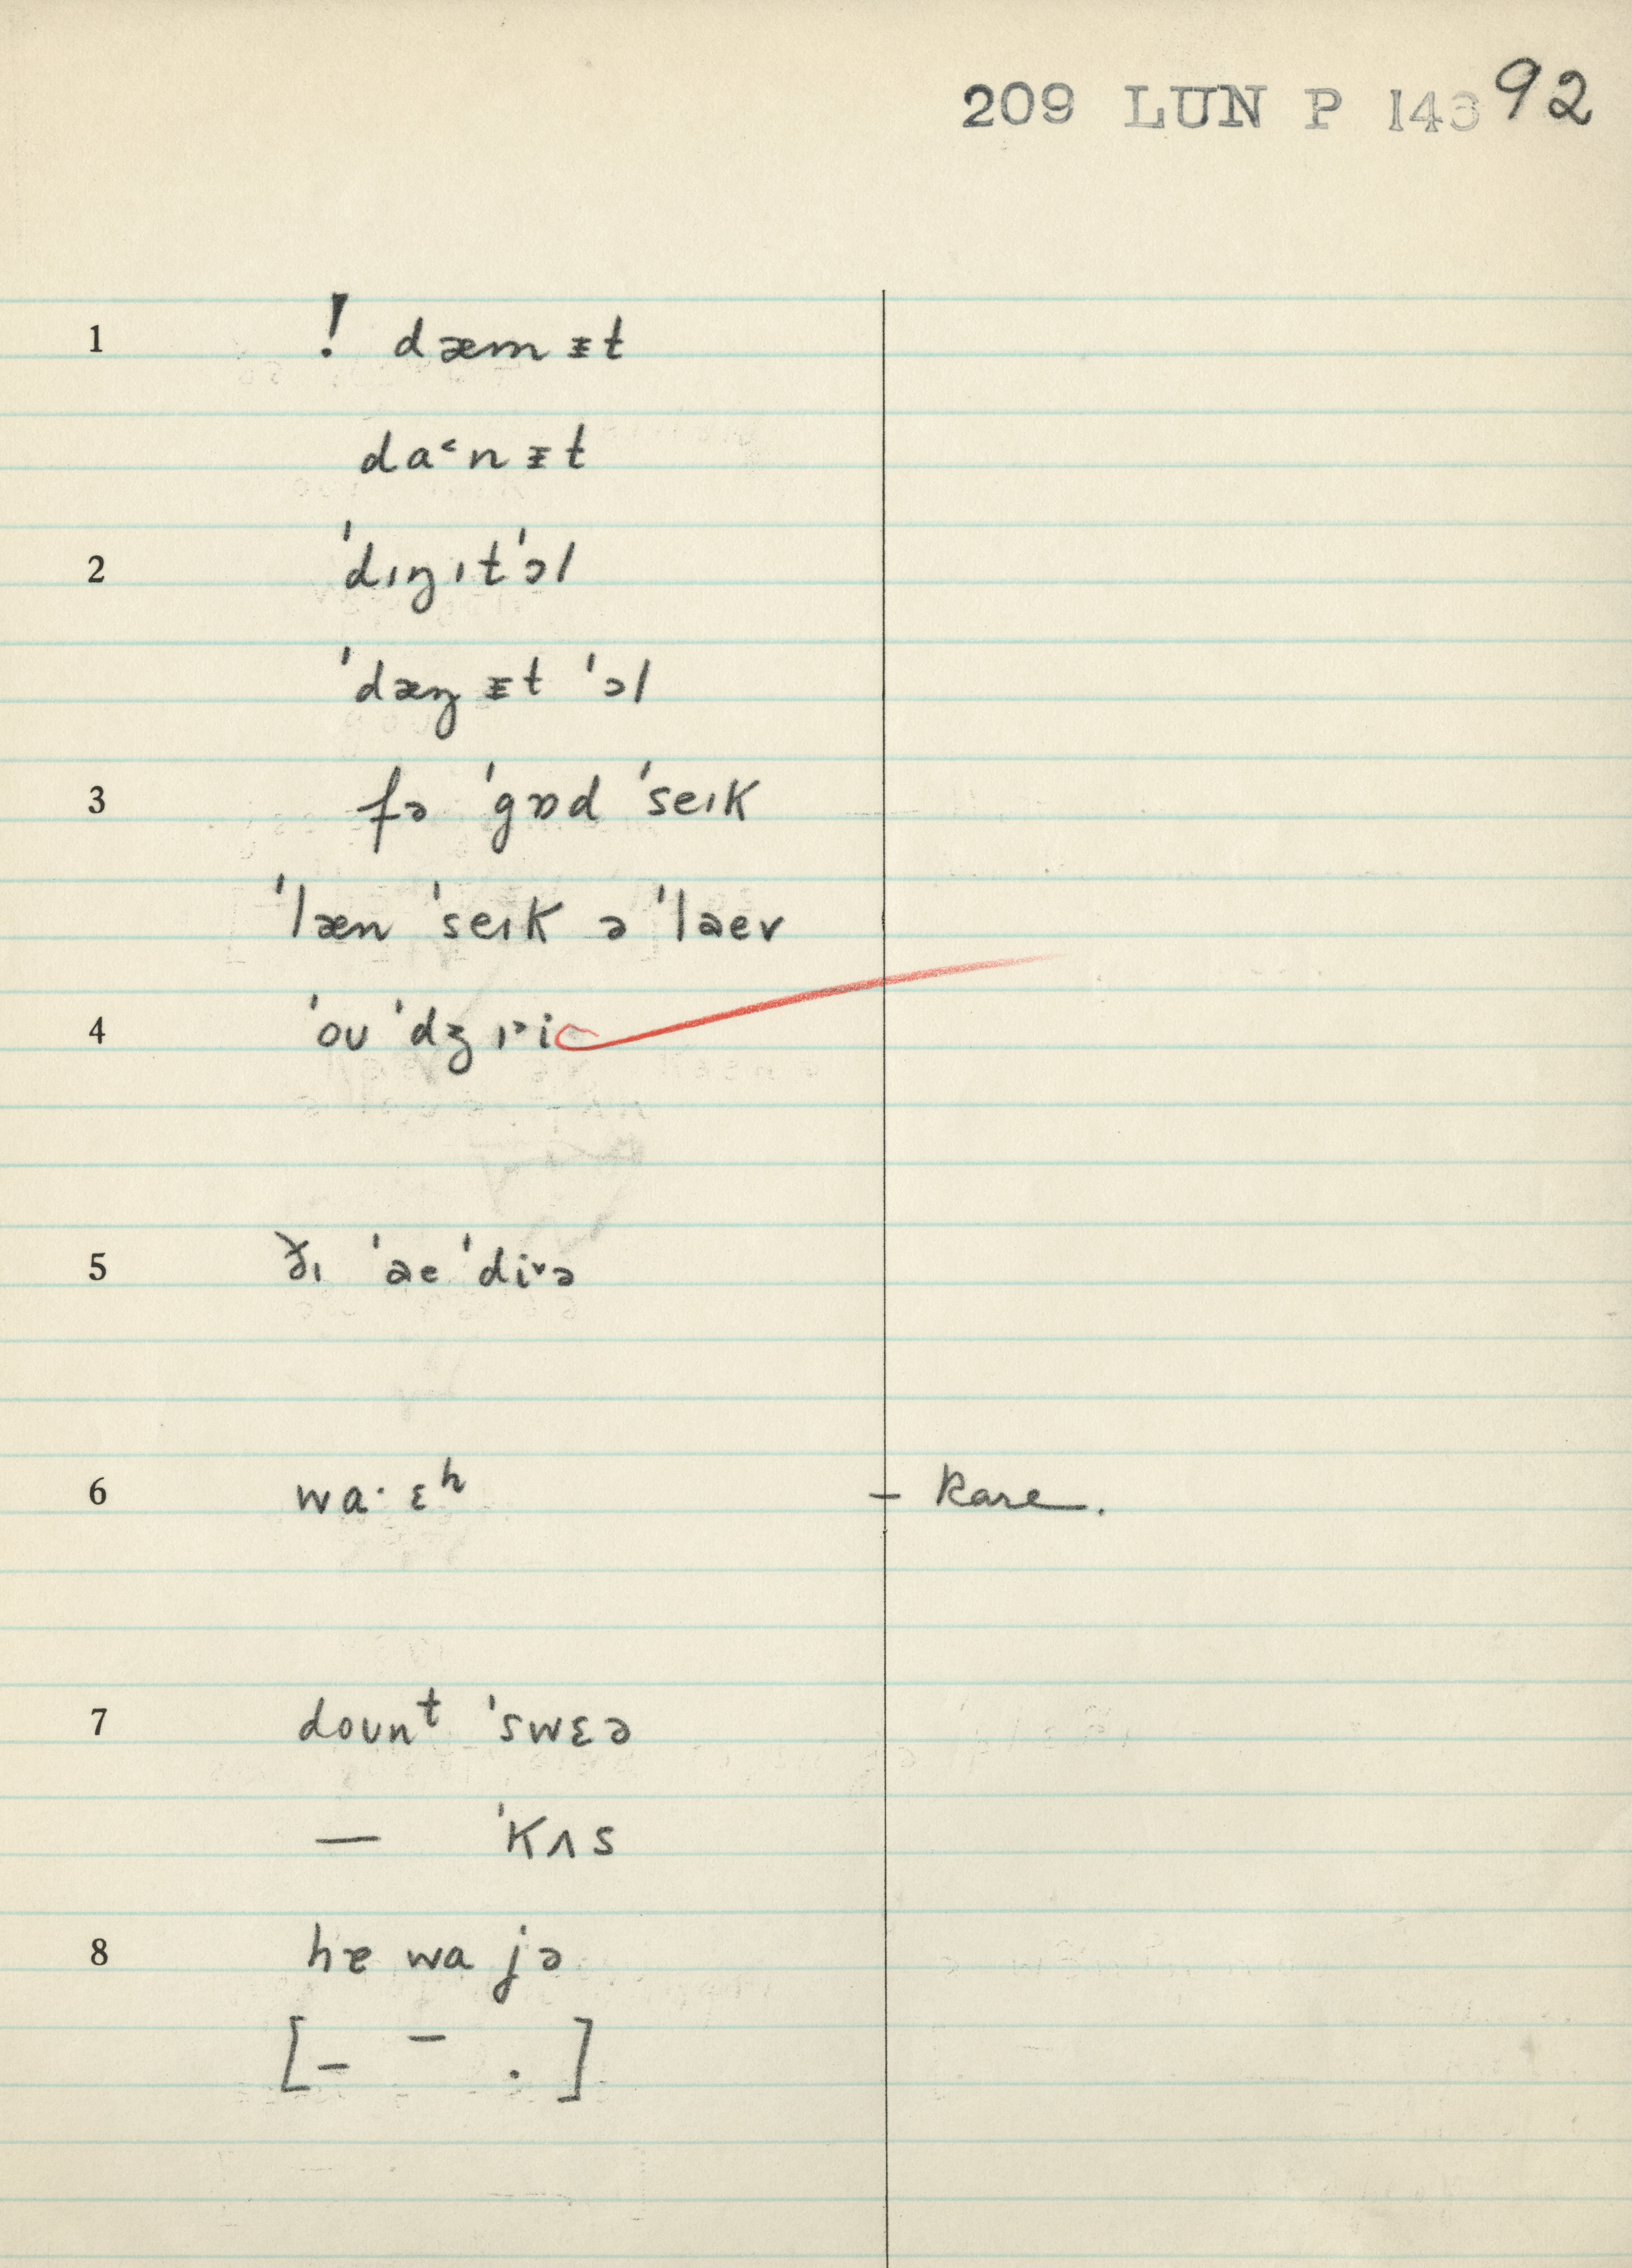 209 LUN P 143 92
1 ! dæm ᵻt
da˂n ᵻt
2 ˈdɪŋ ɪt ˈɔl
ˈdæŋ ᵻt ˈɔl
3 fə ˈgɒd ˈseɪk
ˈlæn ˈseɪk ə ˈlaev
4 ˈoʊ ˈdʒɪ˃i
5 ðɪ ˈae ˈdi˅ə
6 wa· ɛʰ – Rare.
7 doʊnᵗ ˈswɛə
— ˈkʌs
8 hɐ wa jə
[– – .]